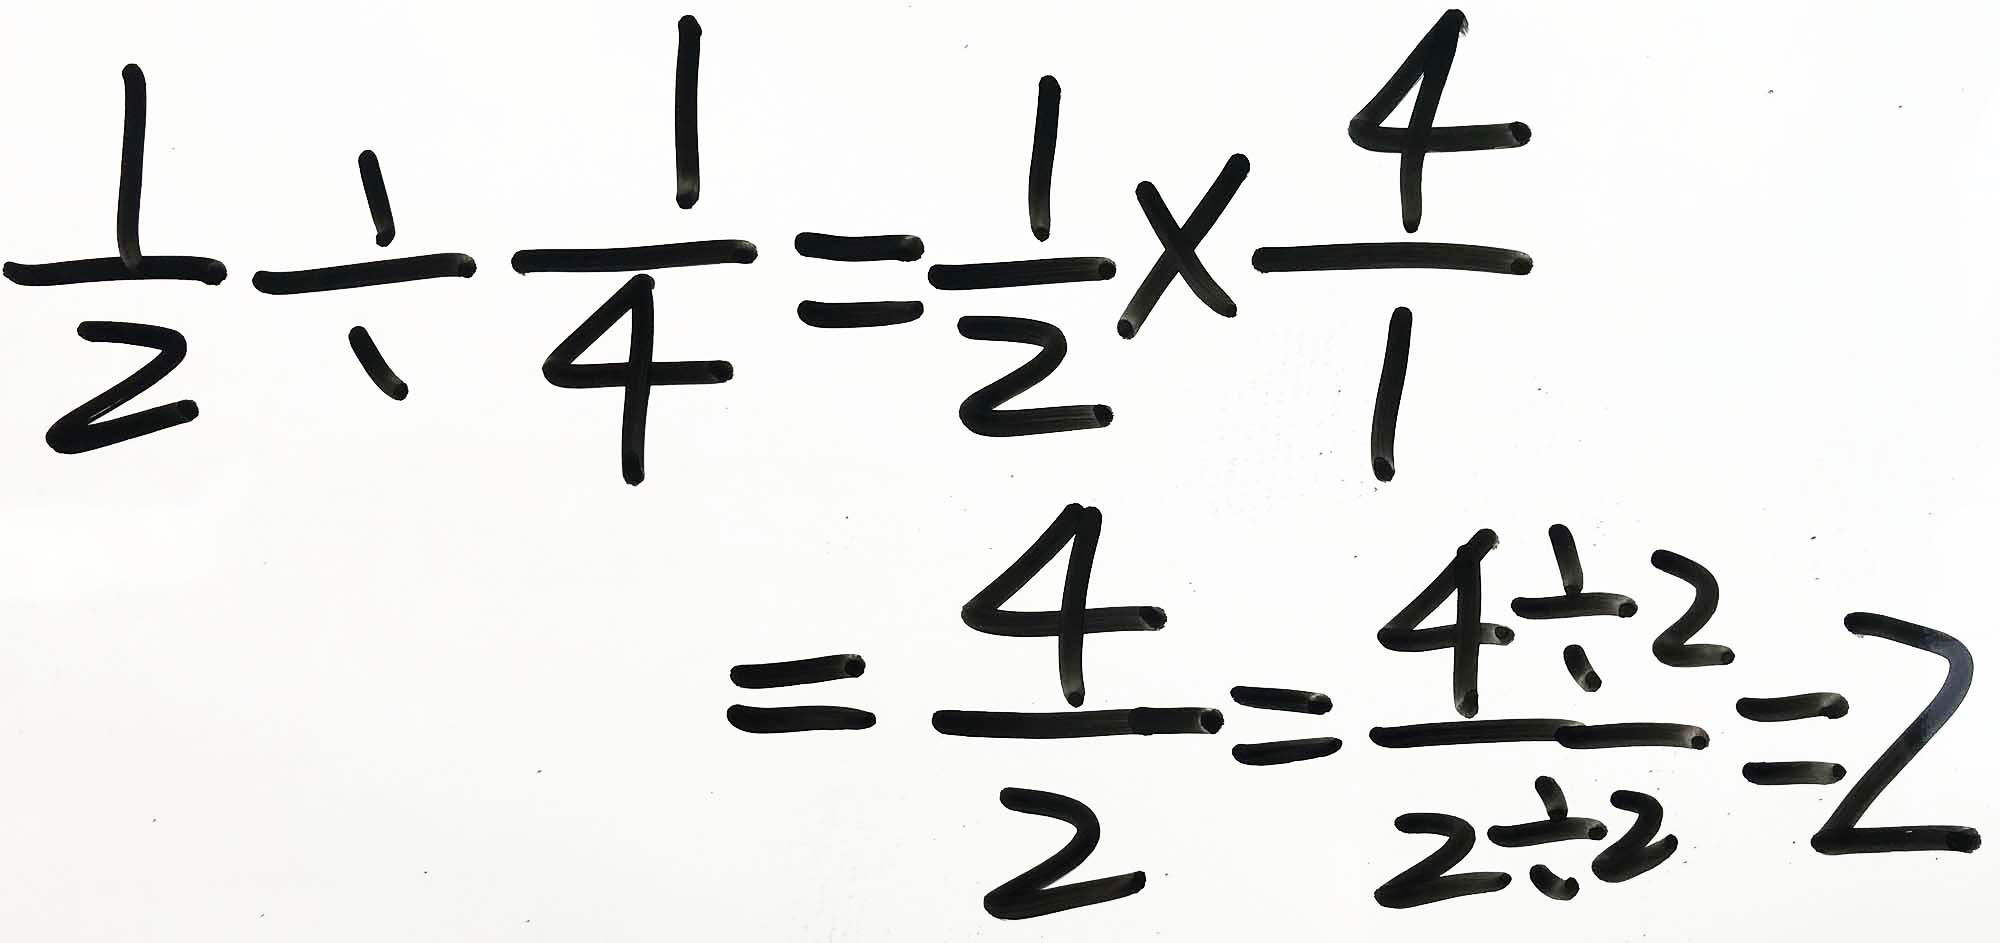 1/2 ÷ 1/4 = 1/2 × 4/1
= 4/2 = 4÷2/2÷2 = 2